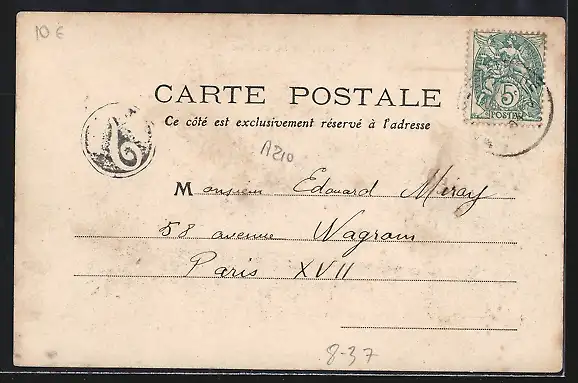 10 €
CARTE POSTALE
Ce côté est exclusivement réservé à l'adresse
A210
Monsieur Edouard Méray
58 avenue Wagram
Paris XVII
8-37
5
POSTES